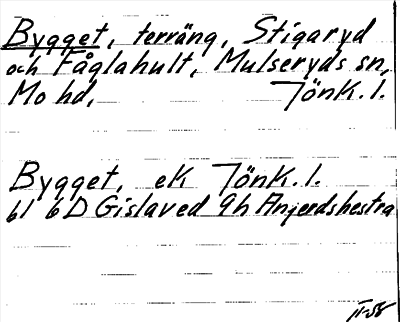 Bygget, terräng, Stigaryd
och Fåglahult, Mulseryds sn,
Mo hd, Jönk. l.
Bygget, ek Jönk. l.
61 6D Gislaved 9h Anjerdshestra